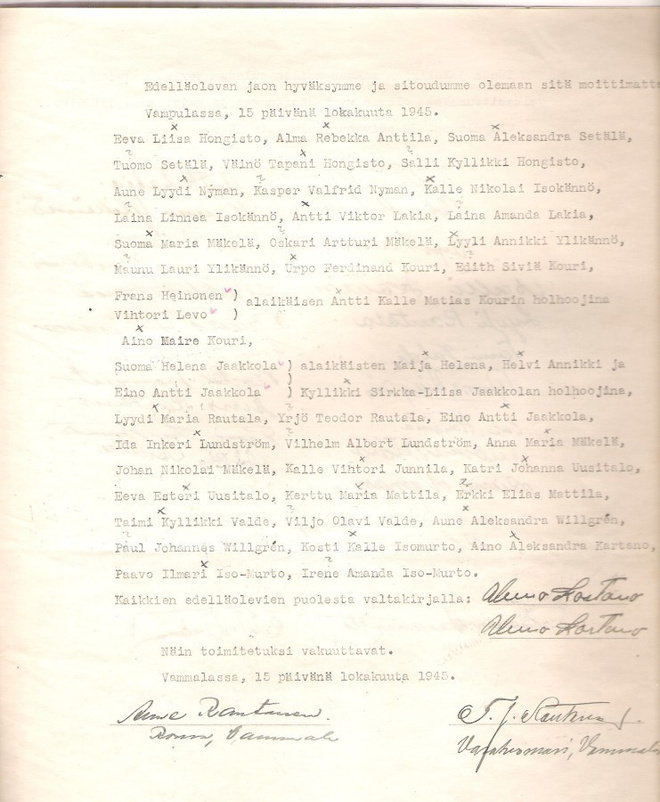 Edelläolevan jaon hyväksymme ja sitoudumme olemaan sitä moittimatta
Vampulassa, 15 päivänä lokakuuta 1945.
Eeva Liisa Hongisto, Alma Rebekka Anttila, Suoma Aleksandra Setälä,
Tuomo Setälä, Väinö Tapani Hongisto, Salli Kyllikki Hongisto,
Aune Lyydi Nyman, Kasper Valfrid Nyman, Kalle Nikolai Isokännö,
Laina Linnea Isokännö, Antti Viktor Lakia, Laina Amanda Lakia,
Suoma Maria Mäkelä, Oskari Artturi Mäkelä, Lyyli Annikki Ylikännö,
Maunu Lauri Ylikännö, Urpo Ferdinand Kouri, Edith Siviä Kouri,
Frans Heinonen ) alaikäisen Antti Kalle Matias Kourin holhoojina
Vihtori Levo )
Aino Maire Kouri,
Suoma Helena Jaakkola ) alaikäisten Maija Helena, Helvi Annikki ja
)
Eino Antti Jaakkola ) Kyllikki Sirkka-Liisa Jaakkolan holhoojina,
Lyydi Maria Rautala, Yrjö Teodor Rautala, Eino Antti Jaakkola,
Ida Inkeri Lundström, Vilhelm Albert Lundström, Anna Maria Mäkelä,
Johan Nikolai Mäkelä, Kalle Vihtori Junnila, Katri Johanna Uusitalo,
Eeva Esteri Uusitalo, Kerttu Maria Mattila, Erkki Elias Mattila,
Taimi Kyllikki Valde, Viljo Olavi Valde, Aune Aleksandra Willgrén,
Paul Johannes Willgrén, Kosti Kalle Isomurto, Aino Aleksandra Kartano,
Paavo Ilmari Iso-Murto, Irene Amanda Iso-Murto.
Kaikkien edelläolevien puolesta valtakirjalla:
Näin toimitetuksi vakuuttavat.
Vammalassa, 15 päivänä lokakuuta 1945.
Rantanen
Rouva, Vammala
Vammala